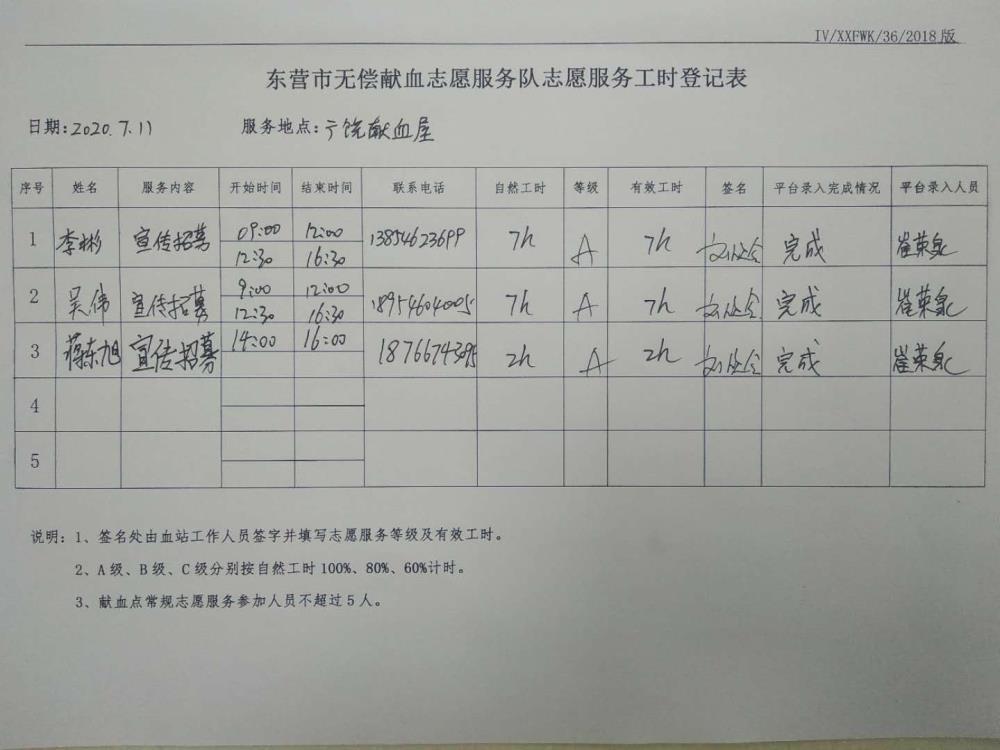 IV/XXFWK/36/2018版
东营市无偿献血志愿服务队志愿服务工时登记表
日期:2020.7.11 服务地点:广饶献血屋
序号 姓名 服务内容 开始时间 结束时间 联系电话 自然工时 等级 有效工时 签名 平台录入完成情况 平台录入人员
1 李彬 宣传招募 09:00 12:00 13854623699 7h A 7h 完成 崔荣泉
12:30 16:30
2 吴伟 宣传招募 9:00 12:00 18954604005 7h A 7h 完成 崔荣泉
12:30 16:30
3 蒋东旭 宣传招募 14:00 16:00 2h A 2h 完成 崔荣泉
4
5
说明:1、签名处由血站工作人员签字并填写志愿服务等级及有效工时。
2、A级、B级、C级分别按自然工时100%、80%、60%计时。
3、献血点常规志愿服务参加人员不超过5人。